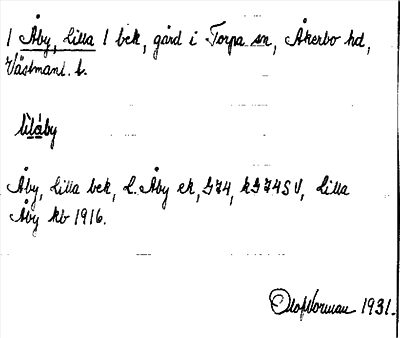 1 Åby, Lilla 1 bek, gård i Torpa sn, Åkerbo hd,
Västmanl. l.
lilåby
Åby, Lilla bek, L. Åby ek, G74, kG74SV, Lilla
Åby kb 1916.
Olof Norman 1931.